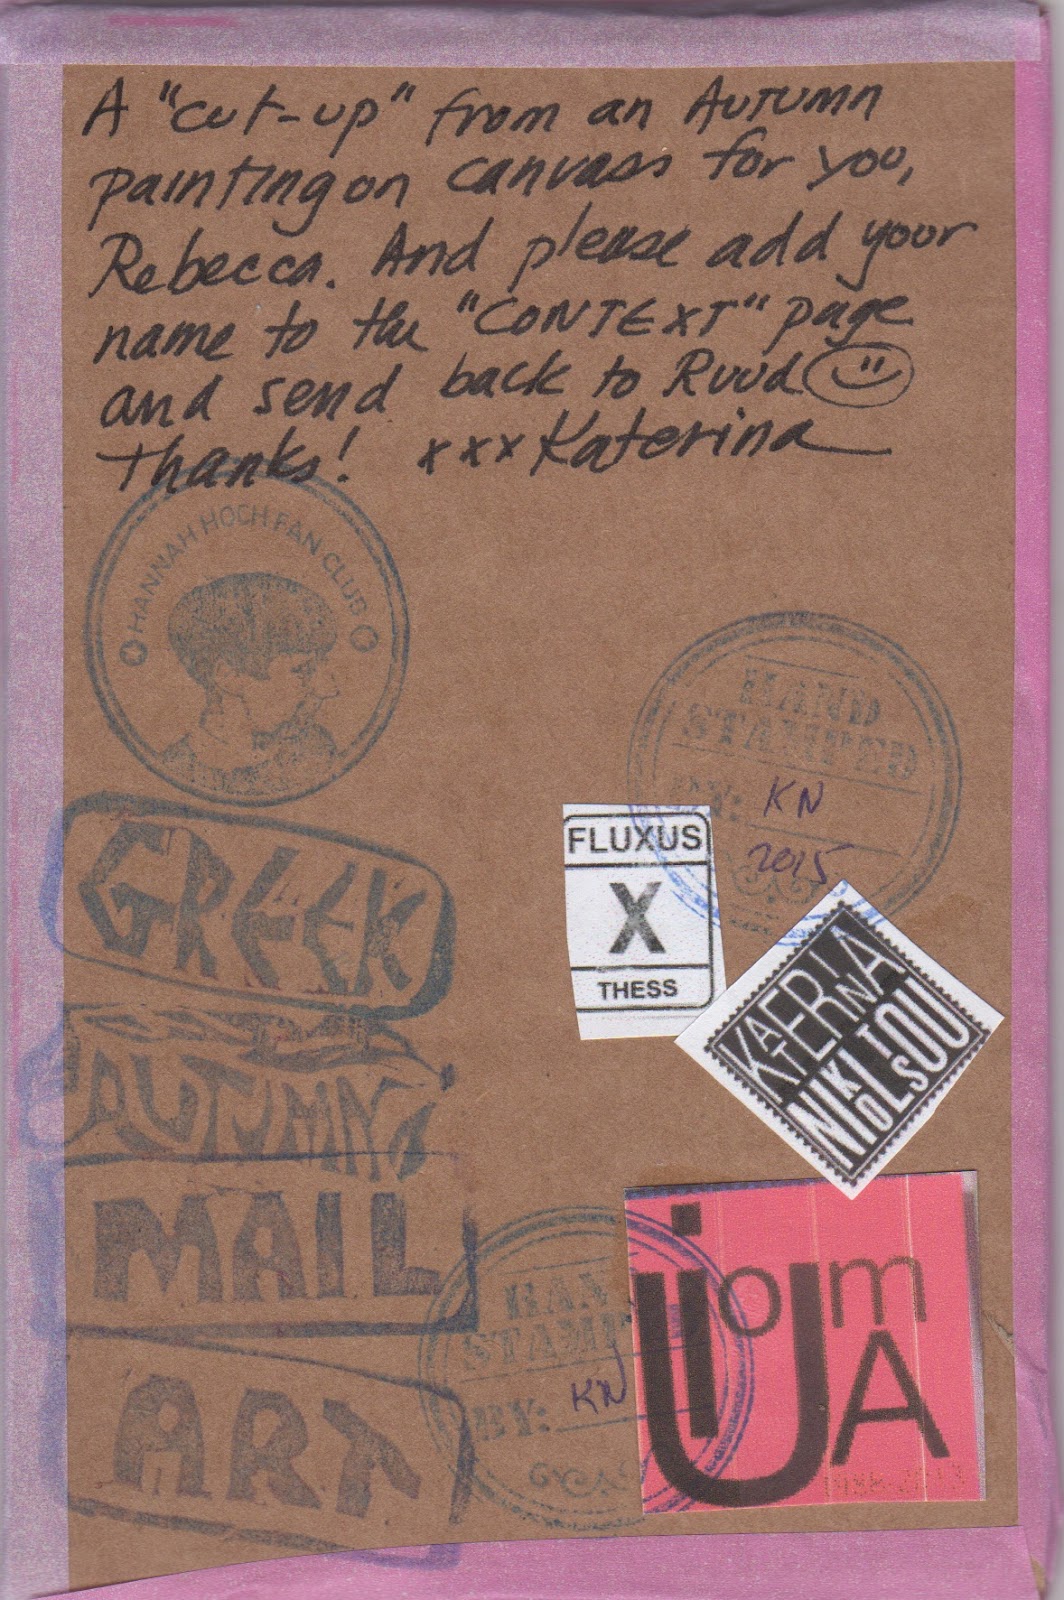 A "cut-up" from an Autumn
painting on canvass for you,
Rebecca. And please add your
name to the "CONTEXT" page
and send back to Ruud
Thanks! xxx Katerina
HANNAH HOCH FAN CLUB
HAND
STAMPED
BY: KN
2015
FLUXUS
X
THESS
KATERINA
NIKOLTSOU
GREEK
AUTUMN
MAIL
ART
HAND
STAMPED
BY: KN
IUOMA